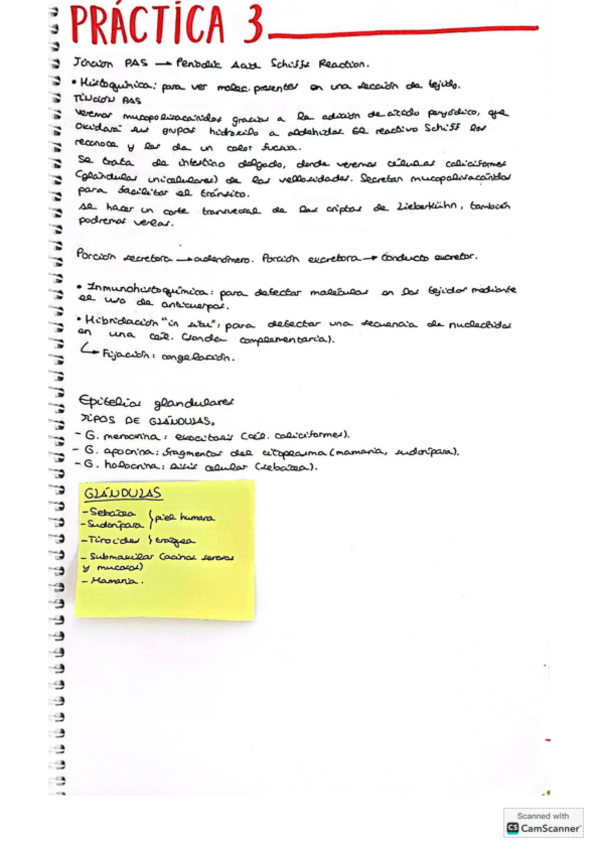 PRÁCTICA 3
Tinción PAS → Periodic Acid Schiffs Reaction.
• Histoquímica: para ver molec. presentes en una sección de tejido.
TINCION PAS
Veremos mucopolisacáridos gracias a la adición de ácido peryódico, que
oxidará sus grupos hidroxilo a aldehidos. El reactivo Schiff los
reconoce y les da un color fucsia.
Se trata de intestino delgado, donde veremos células caliciformes
(glándulas unicelulares) de las vellosidades. Secretan mucopolisacáridos
para facilitar el tránsito.
Se hacer un corte transversal de las criptas de Lieberkühn, también
podremos verlas.
Porción secretora → adenómero. Porción excretora → conducto excretor.
• Inmunohistoquímica: para detectar moléculas en los tejidos mediante
el uso de anticuerpos.
• Hibridación "in situ": para detectar una secuencia de nucleótidos
en una cél. (sonda complementaria).
↳ Fijación: congelación.
Epitelios glandulares
TIPOS DE GLÁNDULAS.
- G. merocrina: exocitosis (cél. caliciformes).
- G. apocrina: fragmentos del citoplasma (mamaria, sudorípara).
- G. holocrina: lisis celular (sebácea).
GLÁNDULAS
- Sebácea
- Sudorípara } piel humana
- Tiroides } tráquea
- Submaxilar (acinos serosos
y mucosos)
- Mamaria.
Scanned with
CS CamScanner